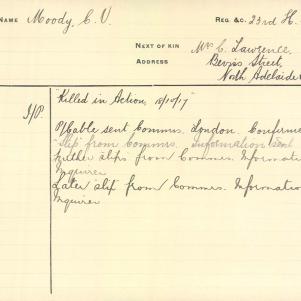 NAME Moody, C. V. REG. &C. 23rd H.
NEXT OF KIN Mrs C. Lawrence,
ADDRESS Beviss Street,
North Adelaide
I/P. Killed in Action, 18/10/17
O/Cable sent Commrs. London. Confirme
slip from Commrs. Information sent
Further slips from Commrs. Informatio
Inquirer
Later slip from Commrs. Informatio
Inquirer